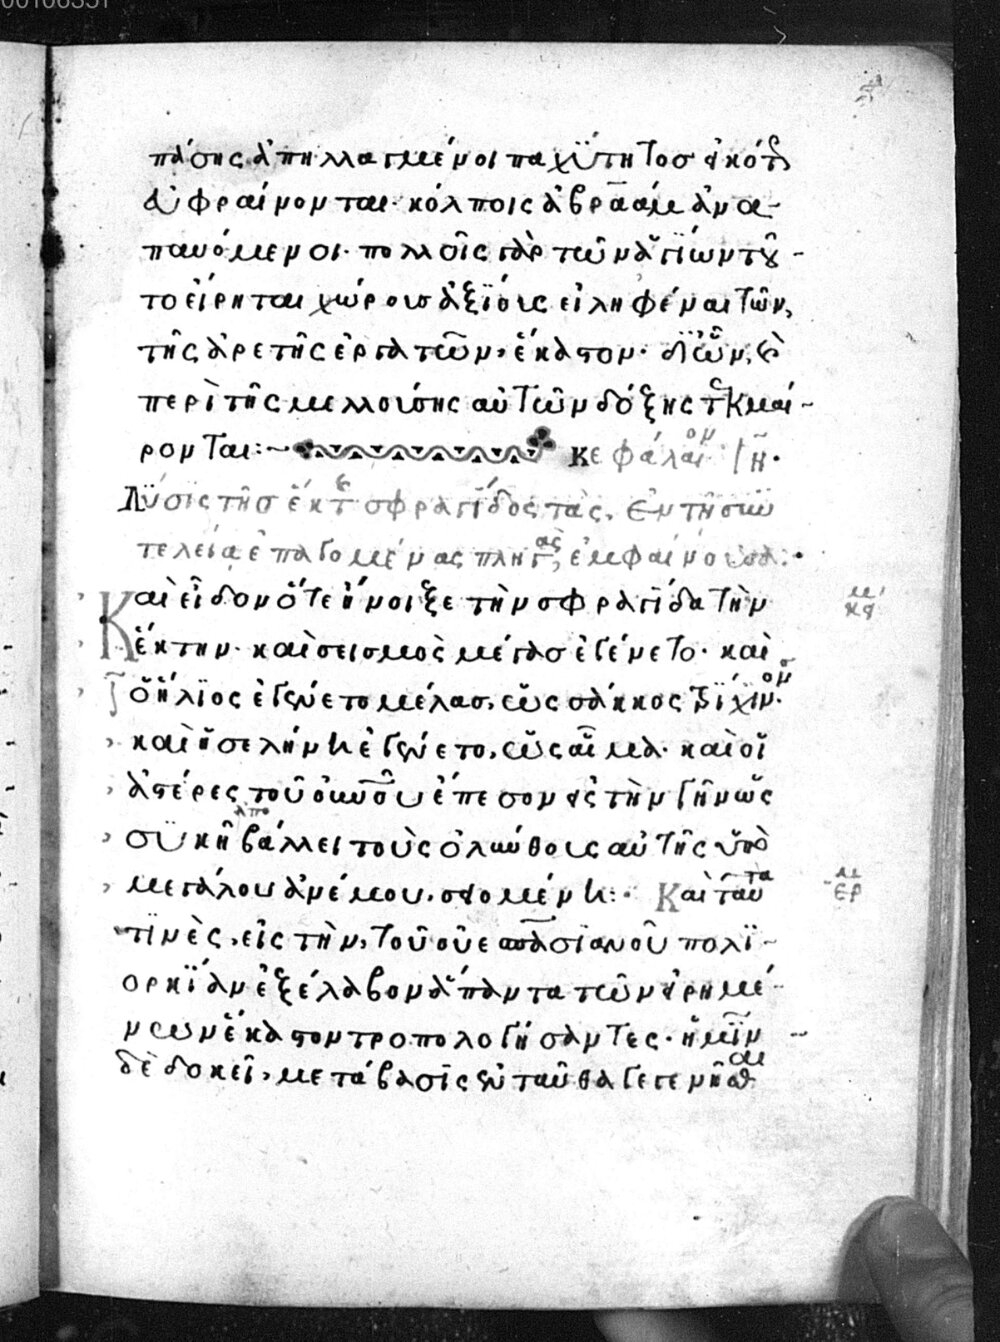 πάσης ἀπηλλαγμένοι παχύτητος εἰκότως
εὐφραίνονται· κόλποις ἀβραὰμ ἀνα-
παυόμενοι· πολλοῖς γὰρ τῶν ἁγίων τοῦ-
το εἴρηται χώρους ἀξίους εἰληφέναι τῶν,
τῆς ἀρετῆς ἐργατῶν, ἕκαστον· δι' ὧν, καὶ
περὶ τῆς μελλούσης αὐτῶν δόξης τεκμαί-
ρονται:~ κεφάλαιον ιη·
Λύσις τῆς ἕκτης σφραγῖδος τὰς, ἐν τῇ συν
τελείᾳ ἐπαγομένας πληγὰς, ἐμφαίνουσα:·
Καὶ εἶδον ὅτε ἤνοιξε τὴν σφραγίδα τὴν
ἕκτην· καὶ σεισμὸς μέγας ἐγένετο· καὶ
ὁ ἥλιος ἐγένετο μέλας, ὡς σάκκος τρίχινον·
καὶ ἡ σελήνη ἐγένετο, ὡς αἷμα· καὶ οἱ
ἀστέρες τοῦ οὐνοῦ ἔπεσον εἰς τὴν γῆν ὡς
συκῆ ἀποβάλλει τοὺς ὀλύνθους αὐτῆς ὑπὸ
μεγάλου ἀνέμου, σειομένη:· Καὶ ταῦτα
τινὲς, εἰς τὴν, τοῦ οὐεσπασιανοῦ πολι-
ορκίαν ἐξέλαβον ἅπαντα τῶν εἰρημέ-
νων ἕκαστον τροπολογήσαντες· ἡμῖν
δὲ δοκεῖ, μετάβασις ἐνταῦθα γεγενῆσθαι